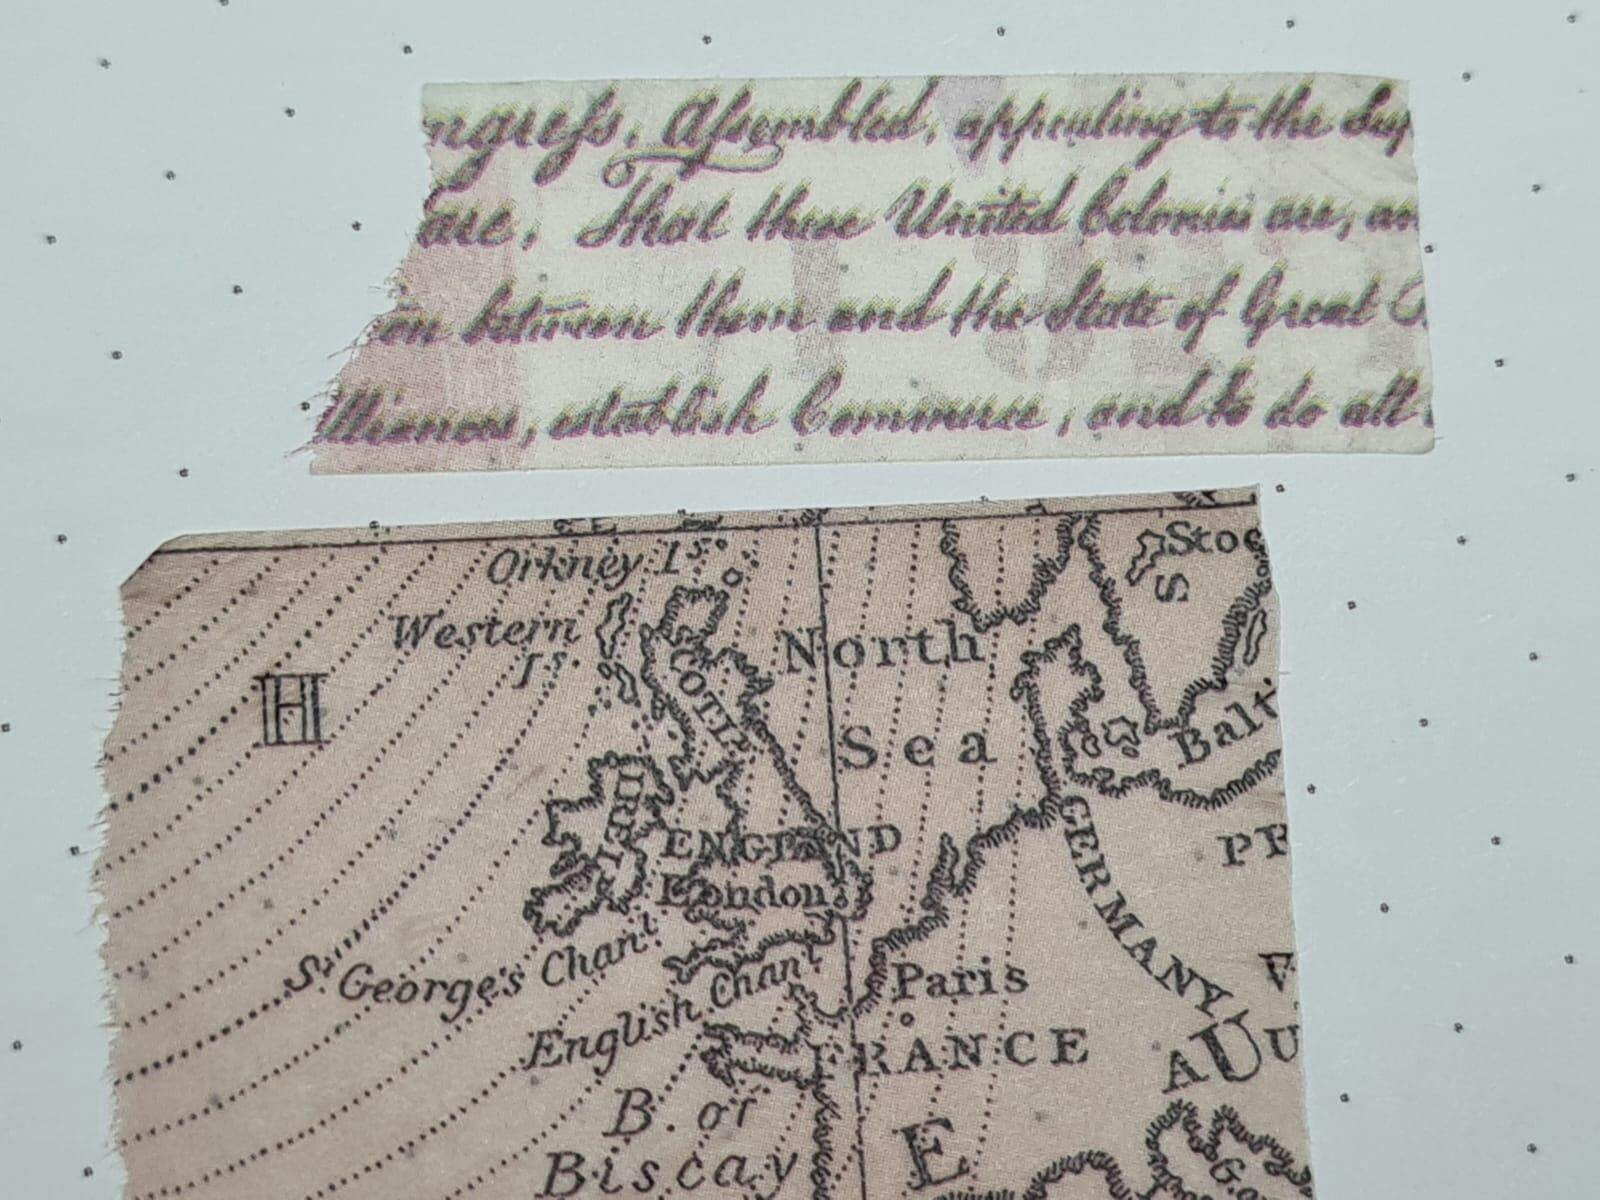 ngreſs, Aſsembled, appealing to the Sup
are, That these United Colonies are, an
ion between them and the State of Great
lliances, establish Commerce, and to do all
Orkney Iˢ.
Western
Iˢ.
North
Sea
H
SCOTL
IREL
ENGLAND
London
Stoc
S
Balt
GERMANY
PR
Sᵗ George's Chanˡ
English Chanˡ
Paris
FRANCE
AU
U
B. of
Biscay
E
G.